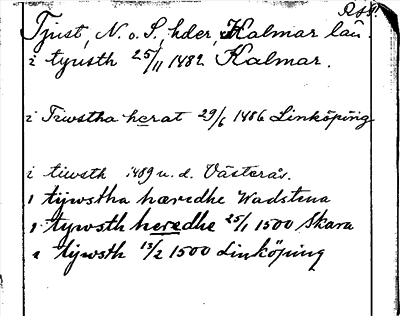 Tjust, N. o. S., hder, Kalmar län.
i tyusth 25/11 1482 Kalmar.
i Tiwstha herat 29/6 1486 Linköping
i tiwsth 1489 u. d. Västerås.
i tijwstha hæredhe Wadstena
i tijwsth heredhe 25/1 1500 Skara
i tijwsth 13/2 1500 Linköping